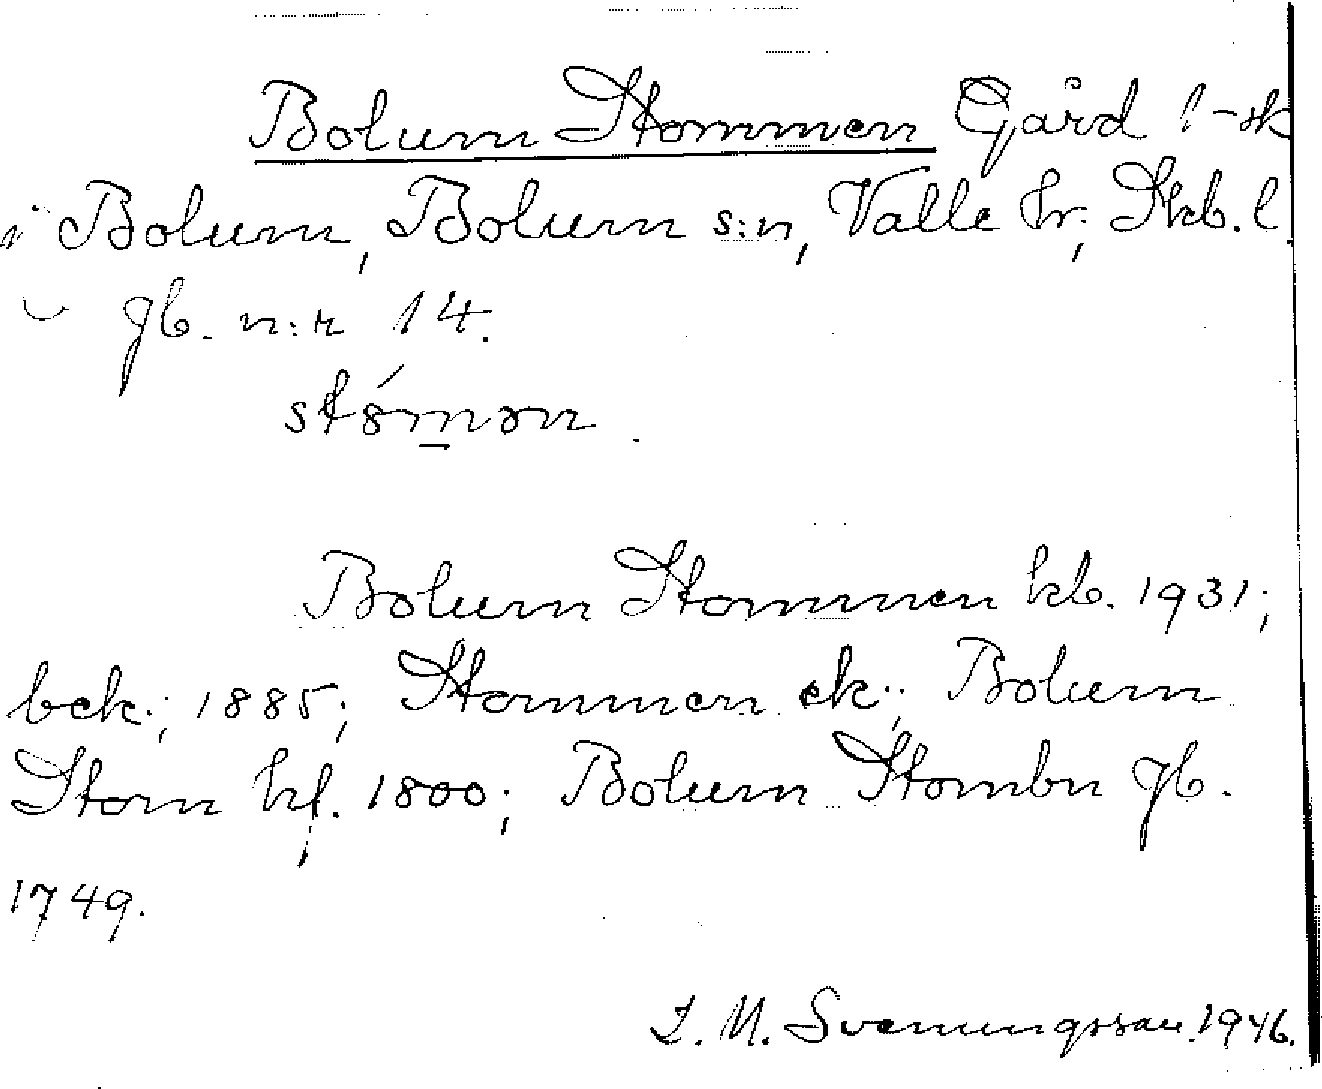 Bolum Stommen Gård 1-sk
i Bolum, Bolum s:n, Valle hr; Skb. l.
gb. n:r 14.
stómən.
Bolum Stommen kb. 1931;
bek; 1885; Stommen ek; Bolum
Stom hf. 1800; Bolum Stombn gb.
1749.
L. M. Svenungsson. 1946.